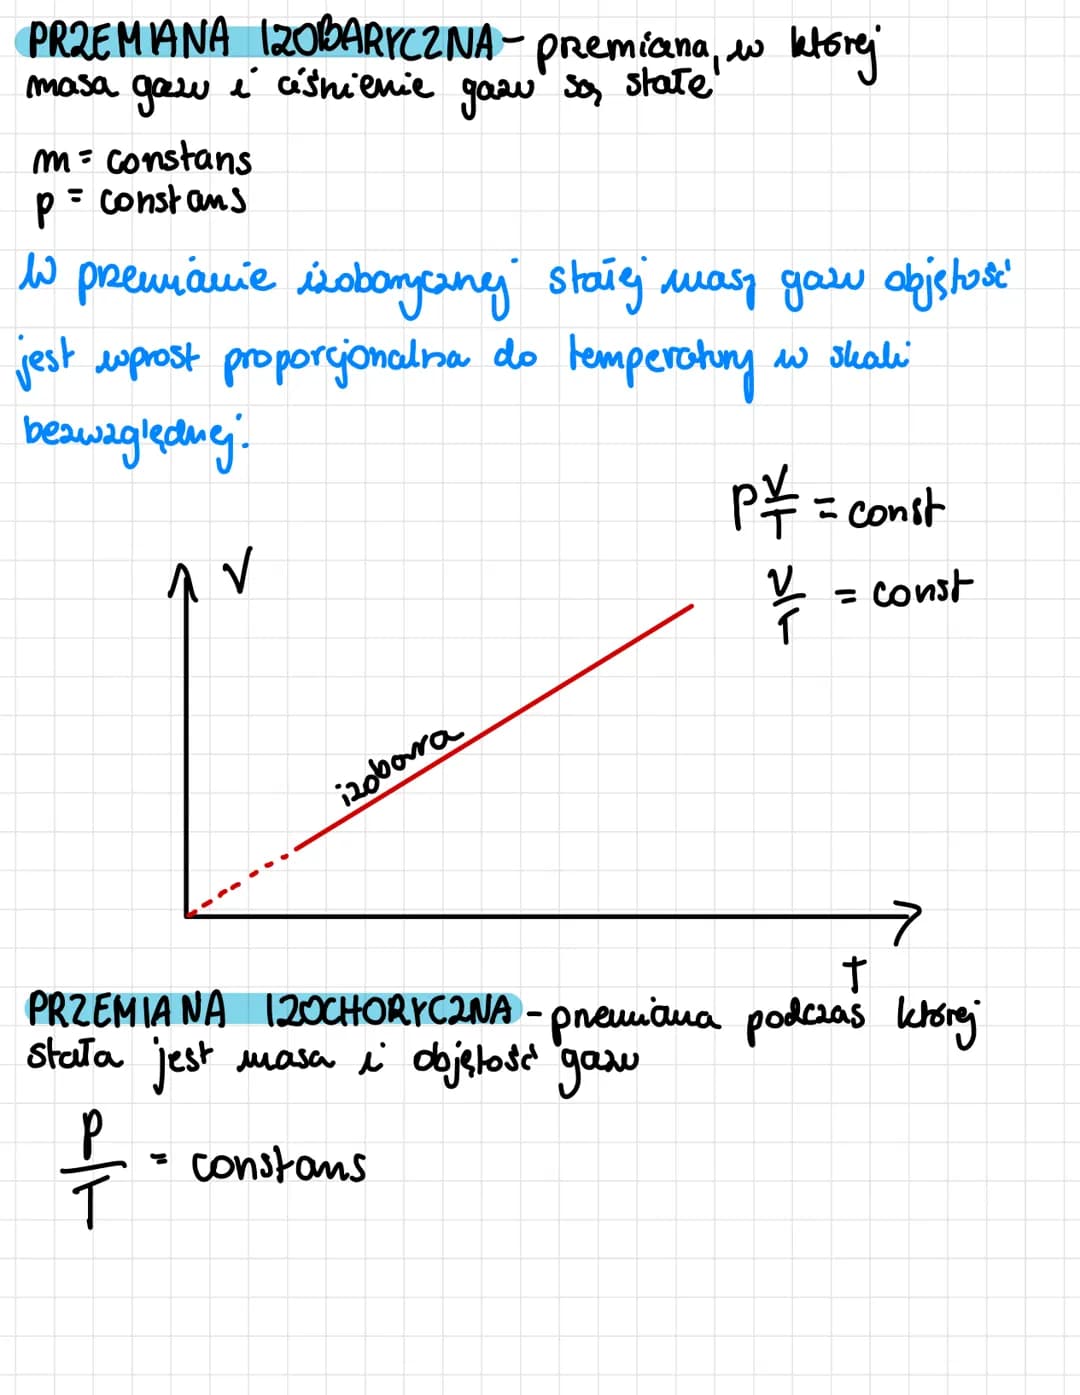 PRZEMIANA IZOBARYCZNA - przemiana, w której
masa gazu i ciśnienie gazu są stałe
m = constans
p = constans
W przemianie izobarycznej stałej masy gazu objętość
jest wprost proporcjonalna do temperatury w skali
bezwzględnej.
p V/T = const
V
V/T = const
izobara
T
PRZEMIANA IZOCHORYCZNA - przemiana podczas której
stała jest masa i objętość gazu
p/T = constans